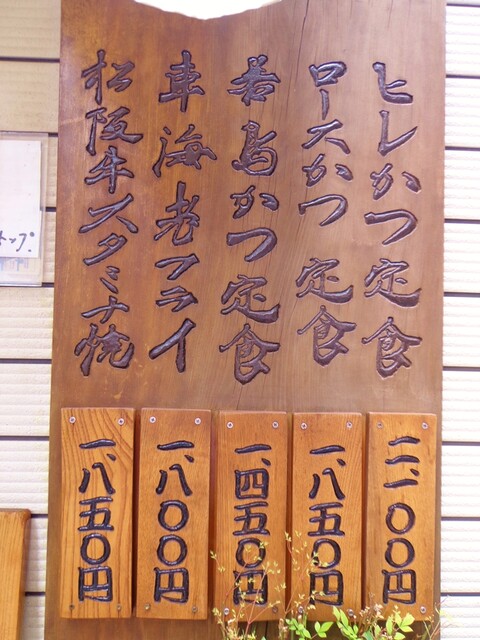 ヒレかつ定食
二、一〇〇円
ロースかつ定食
一、八五〇円
若鳥かつ定食
一、四五〇円
車海老フライ
一、八〇〇円
松阪牛スタミナ焼
一、八五〇円